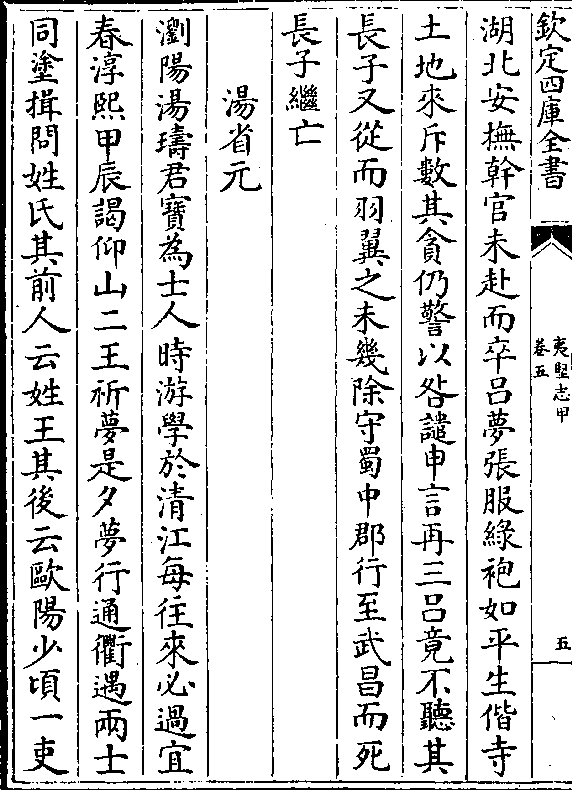 欽定四庫全書
夷堅志甲
卷五
五
湖北安撫幹官未赴而卒呂夢張服緑袍如平生偕寺
土地來斥數其貪仍警以咎譴申言再三呂竟不聽其
長子又從而羽翼之未幾除守蜀中郡行至武昌而死
長子繼亡
湯省元
瀏陽湯璹君寶為士人時游學於清江每往來必過宜
春淳熙甲辰謁仰山二王祈夢是夕夢行通衢遇兩士
同塗揖問姓氏其前人云姓王其後云歐陽少頃一吏